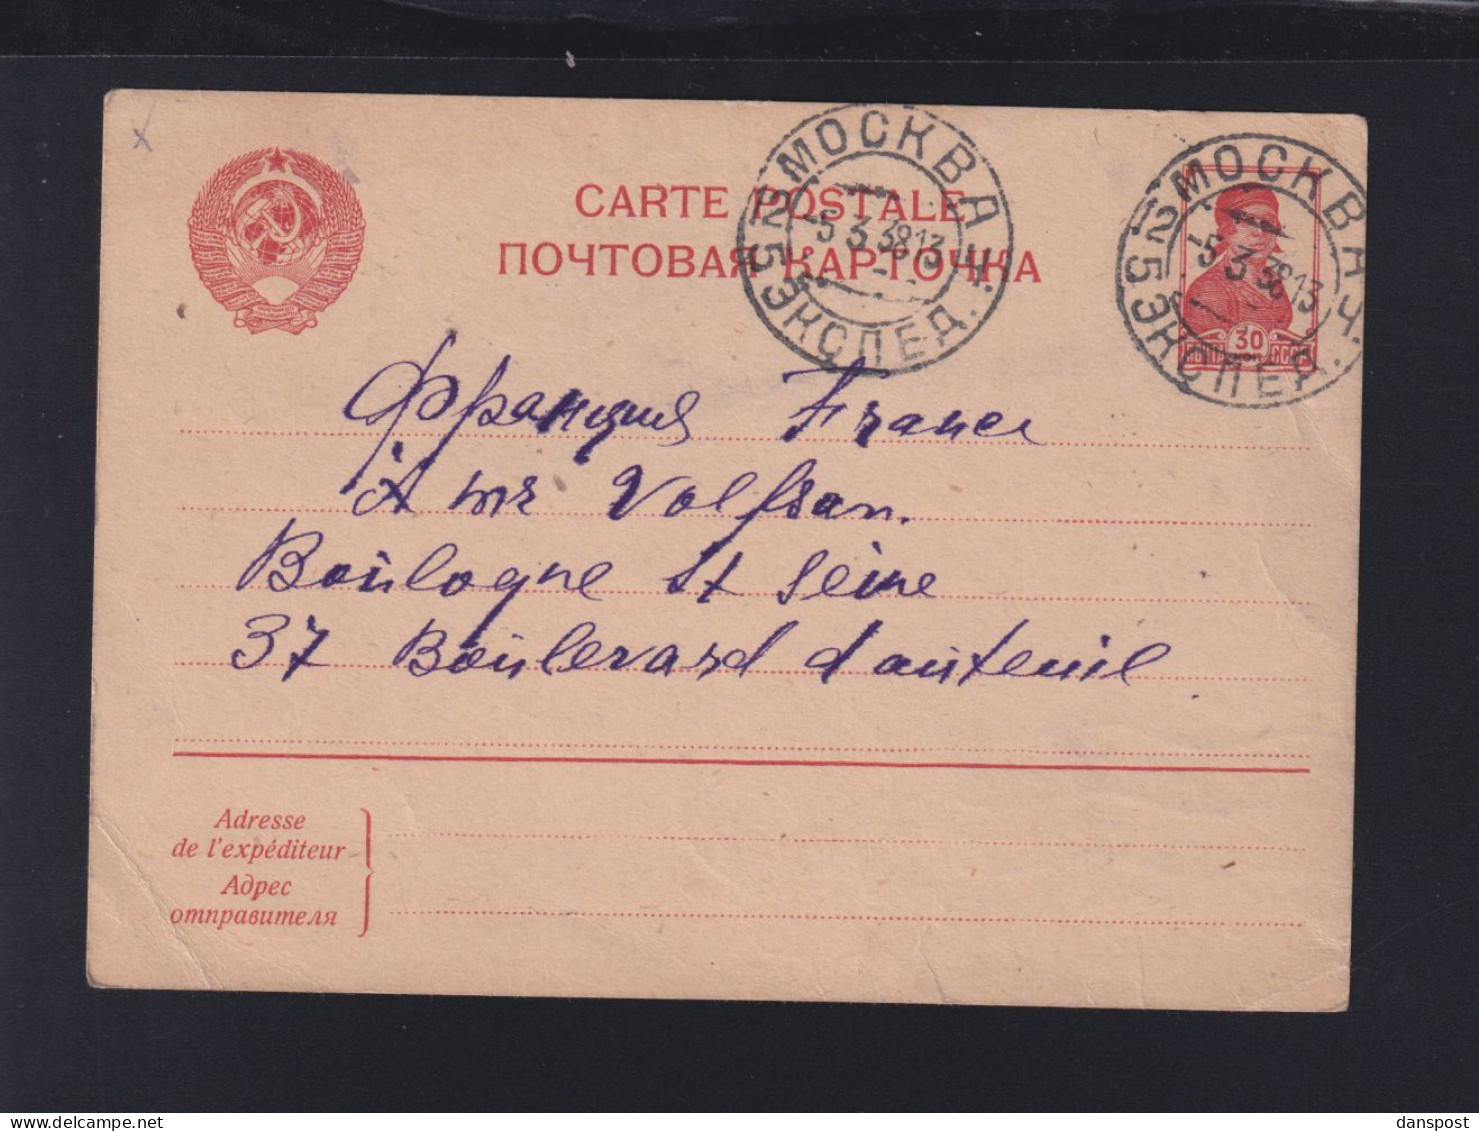 CARTE POSTALE
ПОЧТОВАЯ КАРТОЧКА
МОСКВА Ч. 25 ЭКСПЕД.
-5 3 38 13
МОСКВА Ч. 25 ЭКСПЕД.
-5 3 38 13
30
ПОЧТА СССР
Франция France
A mr Volfson.
Boulogne St Seine
37 Boulevard d'auteuil
Adresse
de l'expéditeur
Адрес
отправителя
delcampe.net
danspost